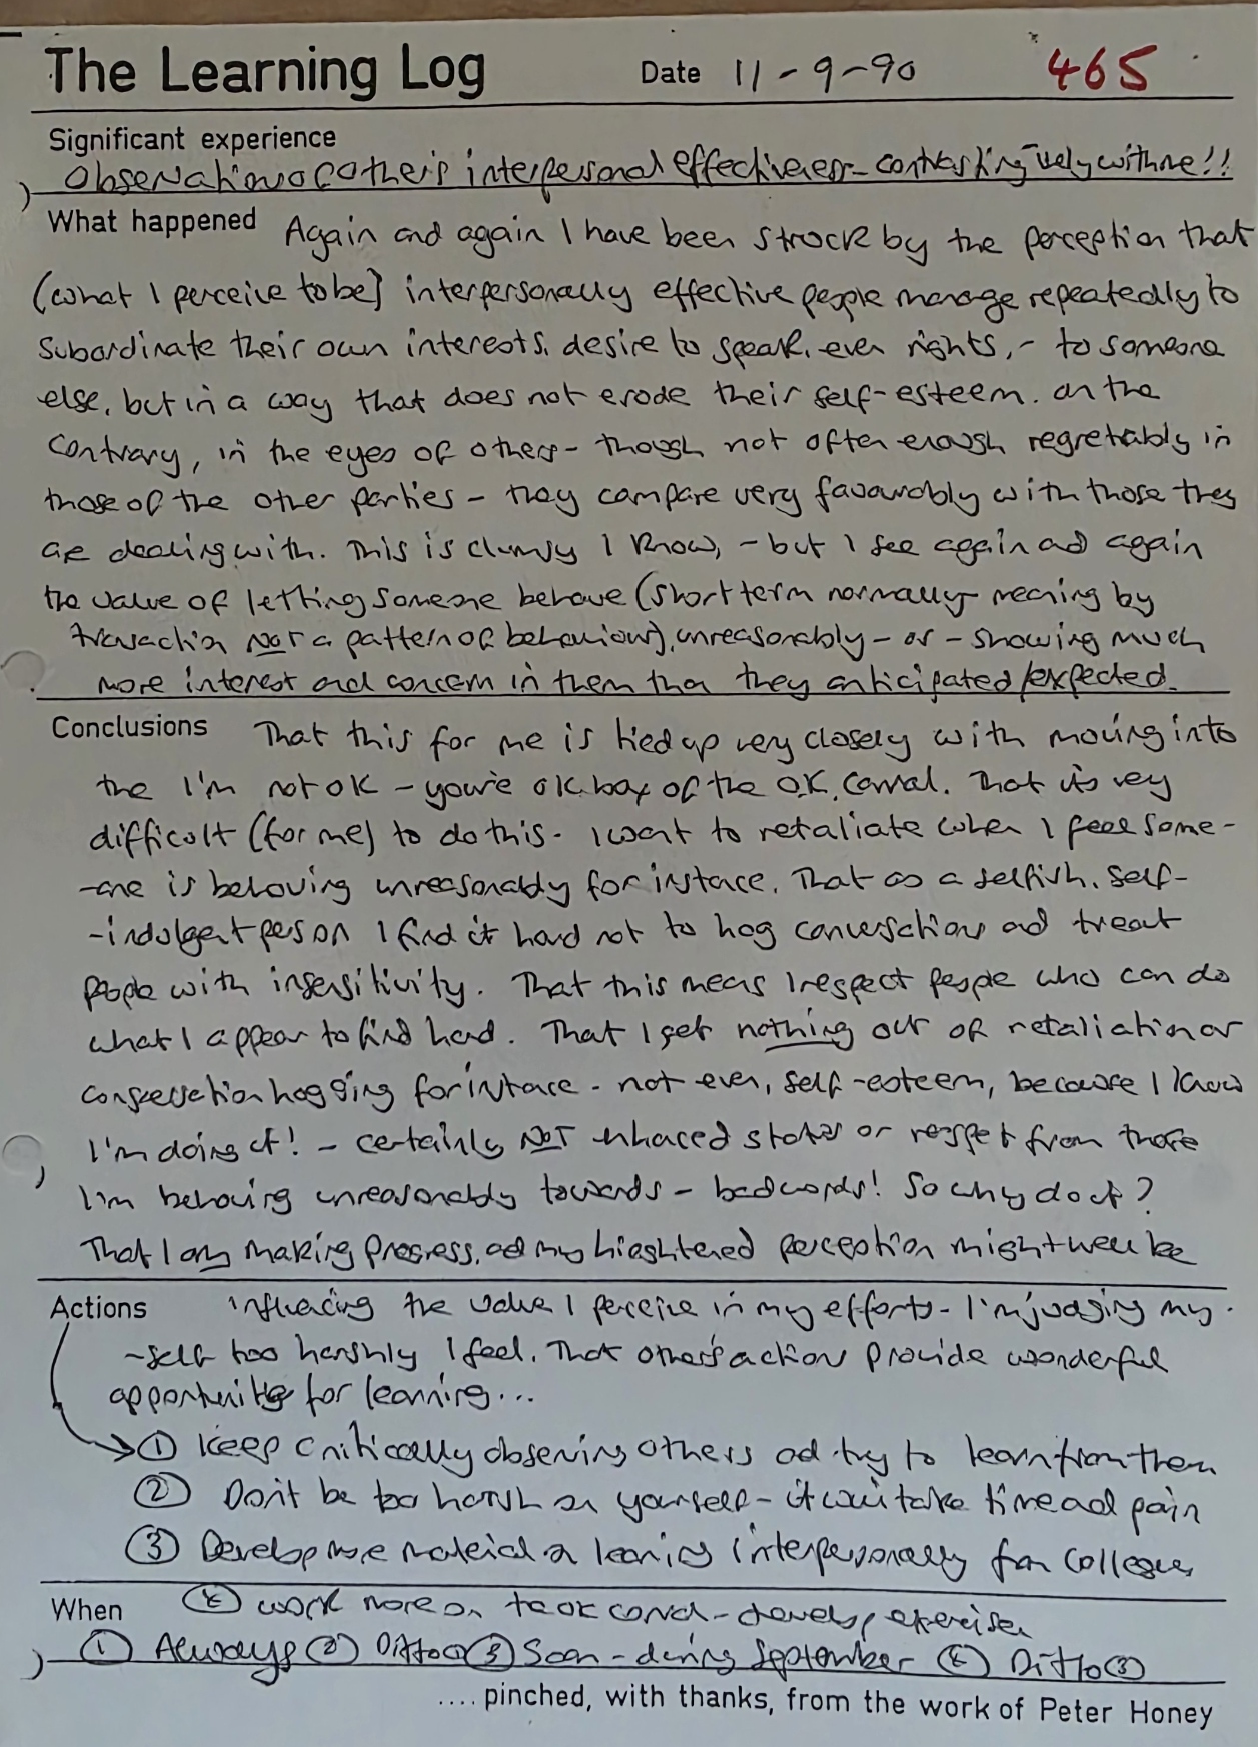 The Learning Log Date 11-9-90 465
Significant experience
Observations of other's interpersonal effectiveness - contrasting 'vely with me!!
What happened Again and again I have been struck by the perception that
(what I perceive to be) interpersonally effective people manage repeatedly to
subordinate their own interests, desire to speak, even rights, - to someone
else, but in a way that does not erode their self-esteem. On the
contrary, in the eyes of others - though not often enough regretably in
those of the other parties - they compare very favourably with those they
are dealing with. This is clumsy I know, - but I see again and again
the value of letting someone behave (short term normally meaning by
transaction NOT a pattern of behaviour), unreasonably - or - showing much
more interest and concern in them than they anticipated/expected.
Conclusions That this for me is tied up very closely with moving into
the I'm not OK - you're ok box of the O.K. Corral. That it's very
difficult (for me) to do this - I want to retaliate when I feel some-
-one is behaving unreasonably for instance. That as a selfish, self-
-indulgent person I find it hard not to hog conversations and treat
people with insensitivity. That this means I respect people who can do
what I appear to find hard. That I get nothing out of retaliation or
conversation hogging for instance - not even, self-esteem, because I know
I'm doing it! - certainly NOT enhanced status or respect from those
I'm behaving unreasonably towards - backwards! So why do it?
That I am making progress, and my hieghtened perception might well be
Actions influencing the value I perceive in my efforts - I'm judging my-
-self too harshly I feel. That other's action provide wonderful
opportunities for learning...
① Keep critically observing others and try to learn from them
② Don't be too harsh on yourself - it will take time and pain
③ Develop more material on learning interpersonally from colleagues
When ④ work more on the OK corral - develop exercises
① Always ② Ditto ① ③ Soon - during September ④ Ditto ③
.... pinched, with thanks, from the work of Peter Honey